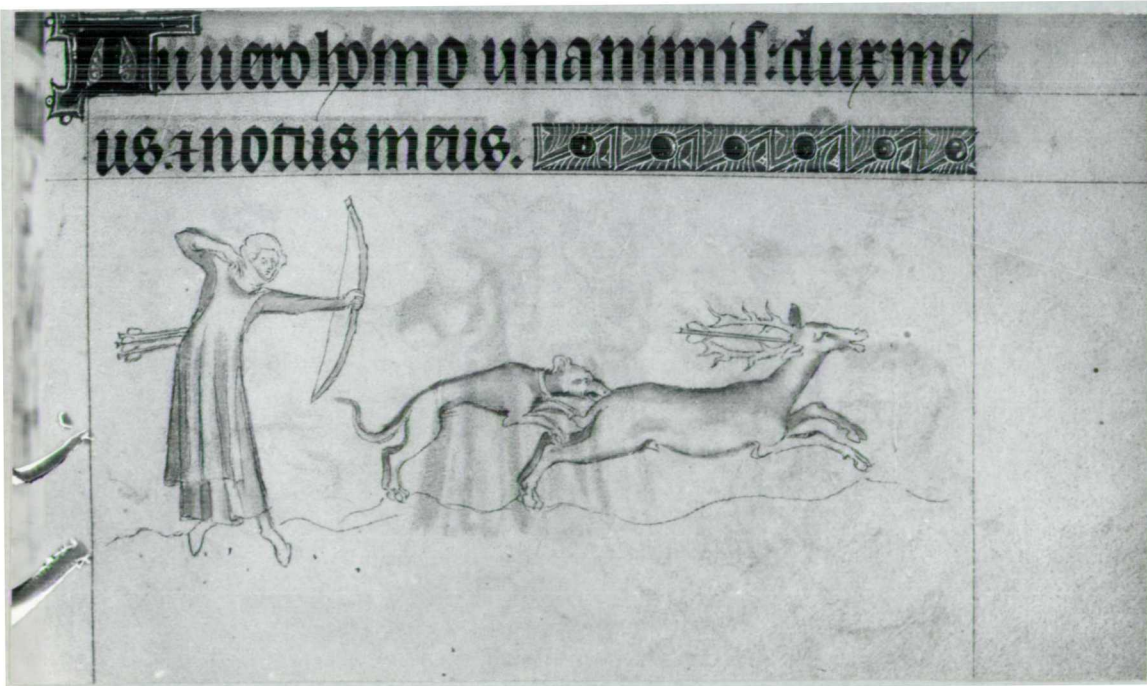 Tu uero homo unanimiſ: dux me
us. ⁊ notus meus.